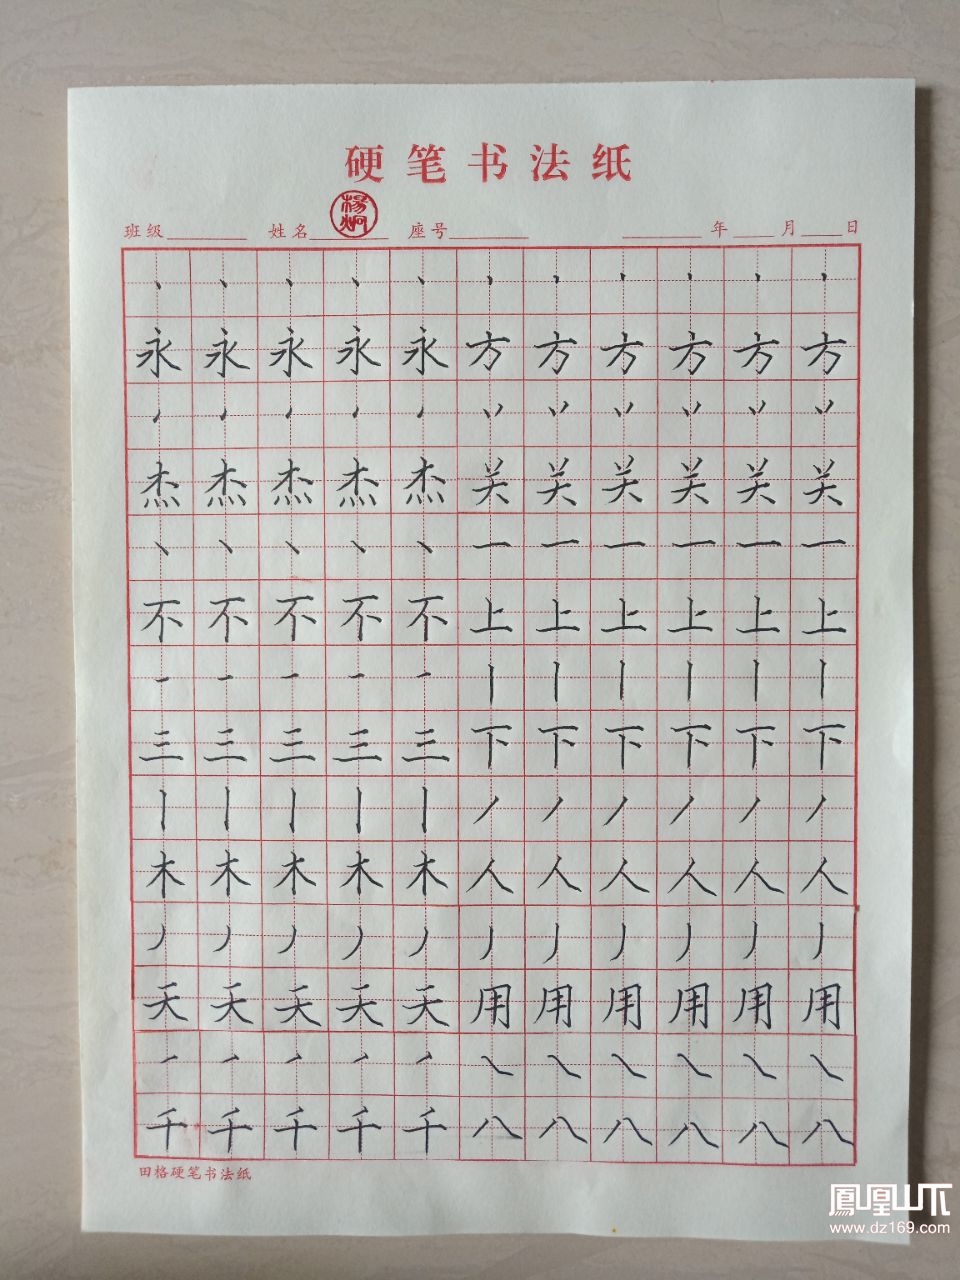 硬笔书法纸
杨炯
班级 姓名 座号 年 月 日
丶丶丶丶丶丶丶丶丶丶丶
永永永永永方方方方方方
杰杰杰杰杰关关关关关关
一一一一一一
不不不不不上上上上上上
一一一一一丨丨丨丨丨丨
三三三三三下下下下下下
丨丨丨丨丨丿丿丿丿丿丿
木木木木木人人人人人人
丿丿丿丿丿丿丿丿丿丿丿
天天天天天用用用用用用
㇏㇏㇏㇏㇏㇏
千千千千千八八八八八八
田格硬笔书法纸
鳳凰山下
www.dz169.com